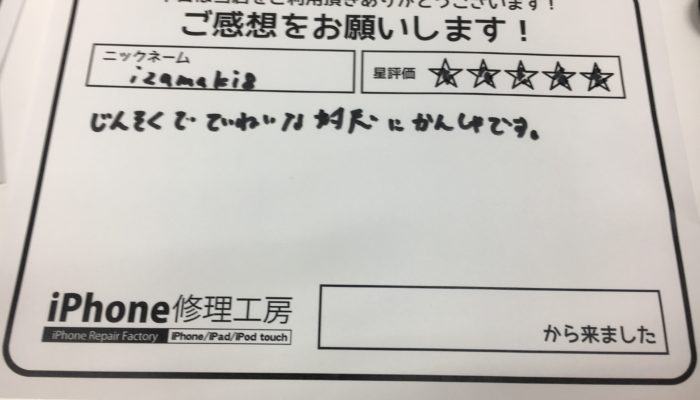 本日は当店をご利用頂きありがとうございます！
ご感想をお願いします！
ニックネーム
izamaki8
星評価 ★★★★★
じんそくで ていねいな 対応に かんしゃです。
iPhone修理工房
iPhone Repair Factory iPhone/iPad/iPod touch
から来ました